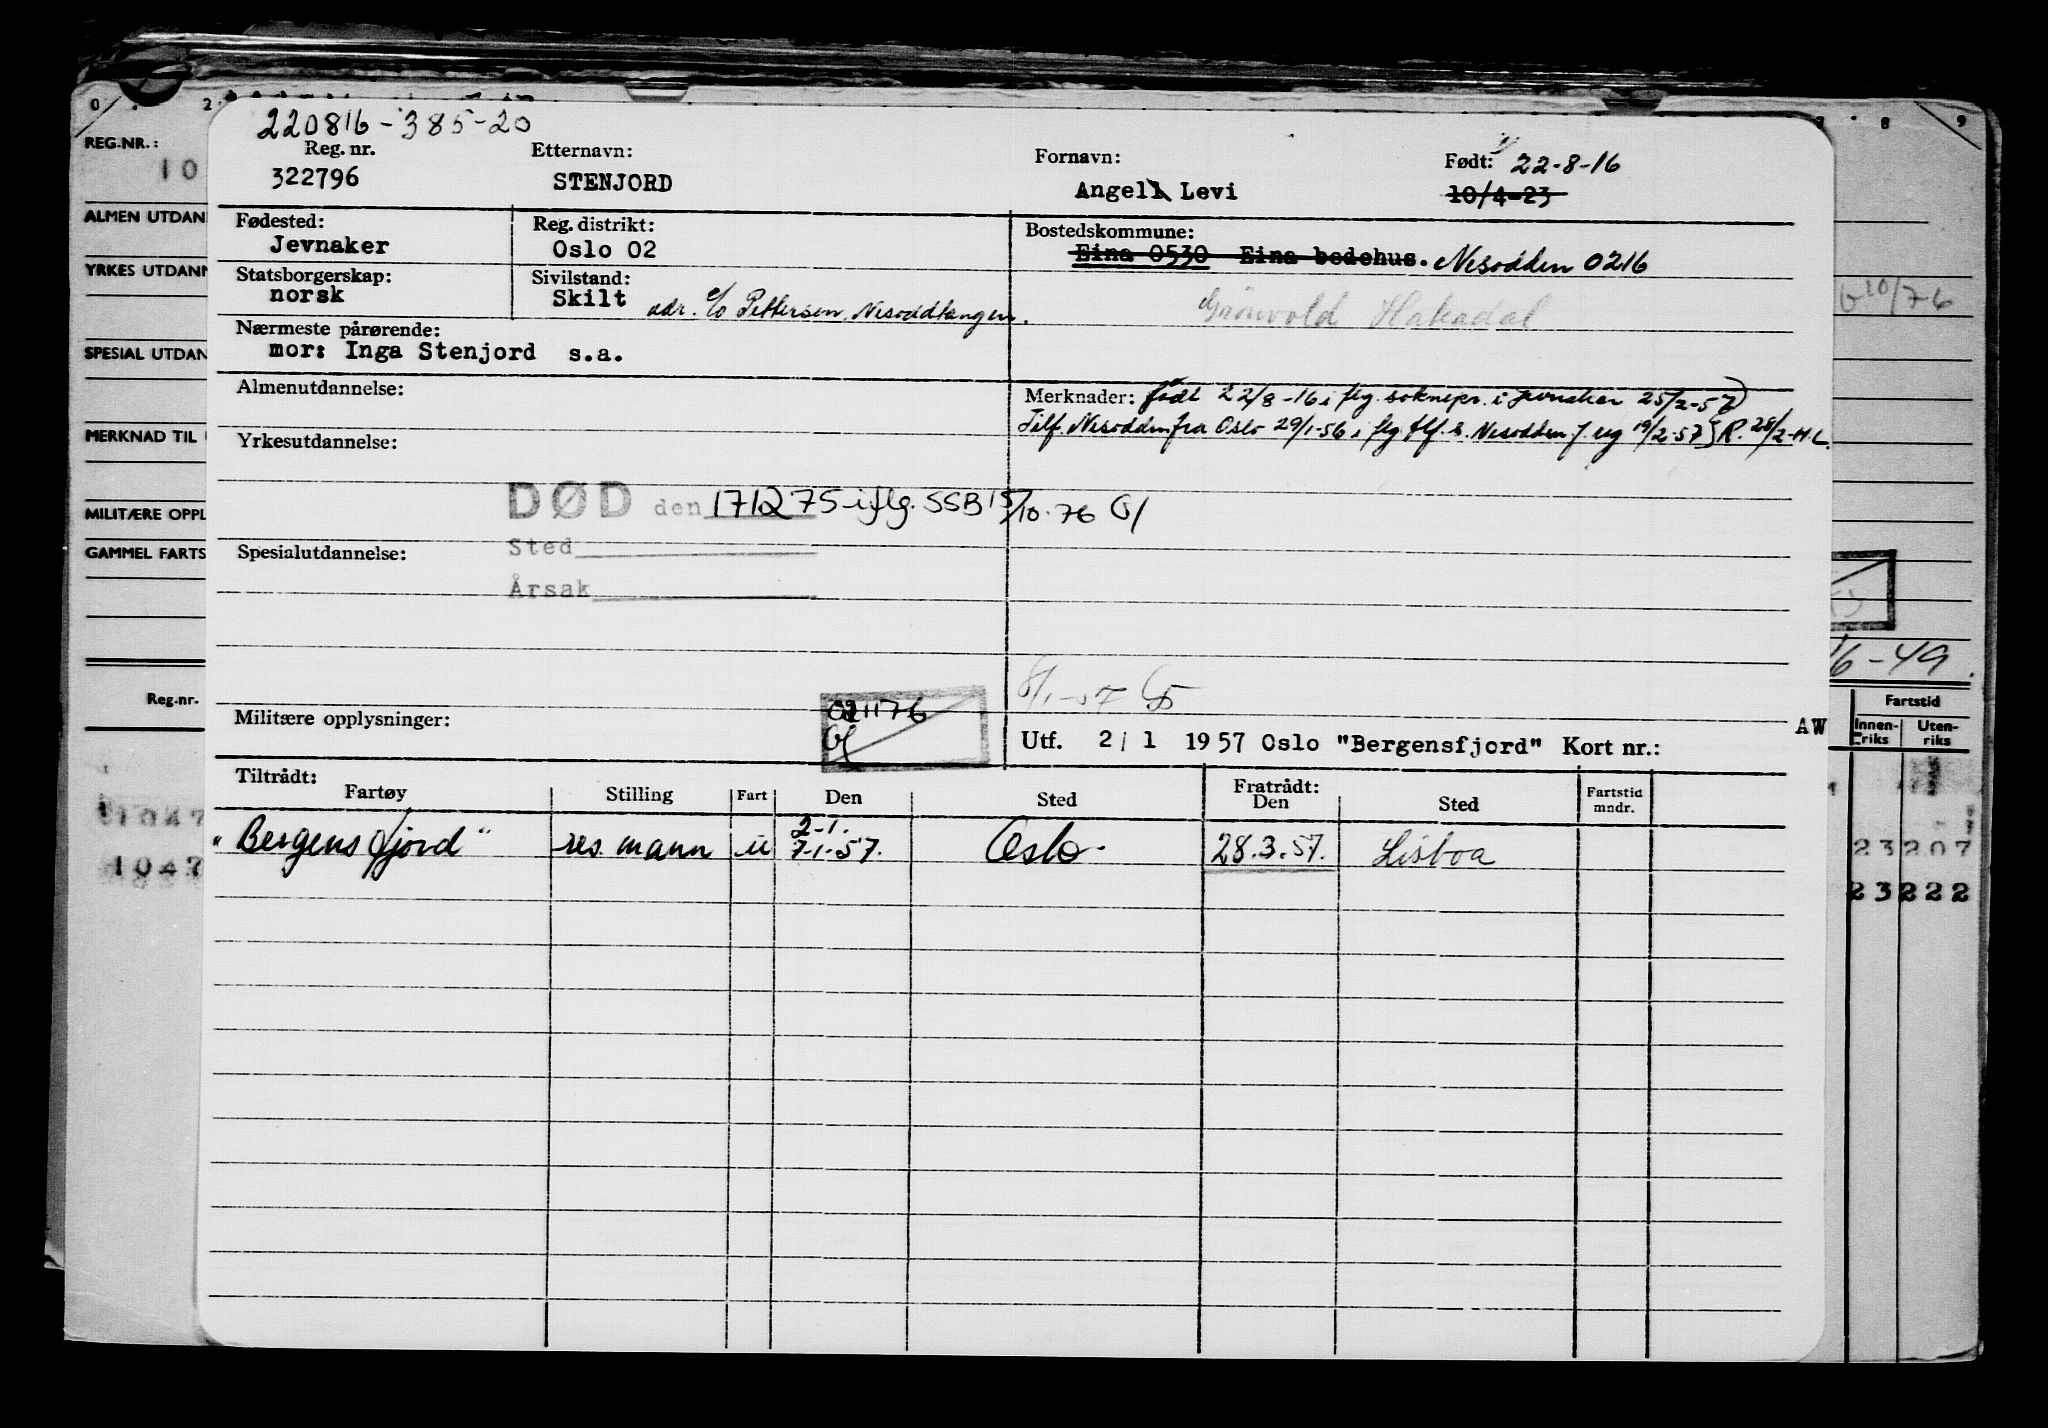 0 2 8 9
220816-385-20
REG.NR.: 10
Reg. nr. Etternavn: Fornavn: Født: 22-8-16
322796 STENJORD Angell Levi 10/4-23
ALMEN UTDAN
Fødested: Reg. distrikt: Bostedskommune:
Jevnaker Oslo 02 Eina 0530 Eina bedehus. Nesodden 0216
YRKES UTDANN
Statsborgerskap: Sivilstand:
norsk Skilt adr. c/o Pettersen, Nesoddtangen. Grönvold Hakadal
10/76
Nærmeste pårørende:
mor: Inga Stenjord s.a.
SPESIAL UTDAN
Almenutdannelse: Merknader: født 22/8-16 i flg. soknepr. i Jevnaker 25/2-57
Tilf. Nesodden fra Oslo 29/1-56 i flg flf. s. Nesodden f. reg 19/2-57 R. 28/2-H.L.
MERKNAD TIL
Yrkesutdannelse:
DØD den 171275 iflg. SSB 15/10.76
MILITÆRE OPPL
GAMMEL FARTS
Spesialutdannelse: Sted
Årsak
16-49.
8/1-57
Reg.nr. Fartstid
Militære opplysninger: 021176
Utf. 2/1 1957 Oslo "Bergensfjord" Kort nr.: AW
Innen-riks Uten-riks
Tiltrådt: Fratrådt:
Fartøy Stilling Fart Den Sted Den Sted Fartstid mndr.
1047 2-1. 23207
"Bergensfjord" res. mann u 7-1-57. Oslo 28.3.57. Lisboa
1047 23222